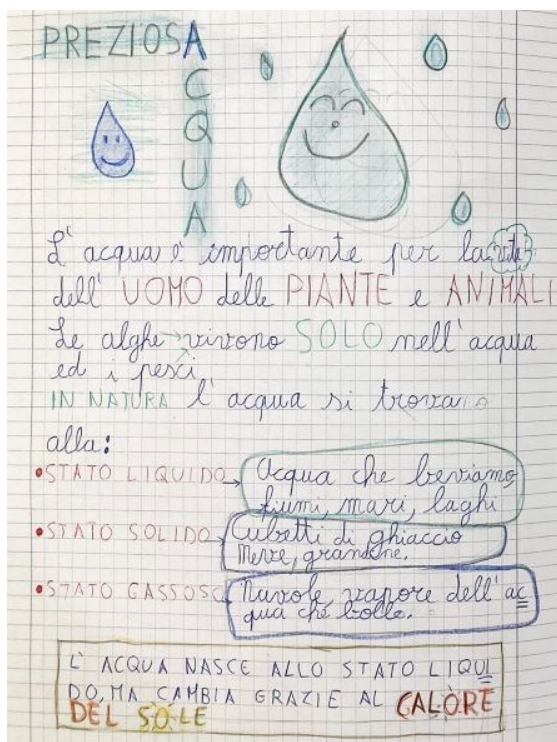 PREZIOSA
C
Q
U
A
L'acqua è importante per la vita
dell' UOMO delle PIANTE e ANIMALI
Le alghe vivono SOLO nell'acqua
ed i pesci
IN NATURA l'acqua si trova
alla:
•STATO LIQUIDO → Acqua che beviamo,
fiumi, mari, laghi
•STATO SOLIDO Cubetti di ghiaccio
neve, grandine.
•STATO GASSOSO Nuvole, vapore dell'ac
qua che bolle.
L'ACQUA NASCE ALLO STATO LIQUI
DO, MA CAMBIA GRAZIE AL CALORE
DEL SOLE